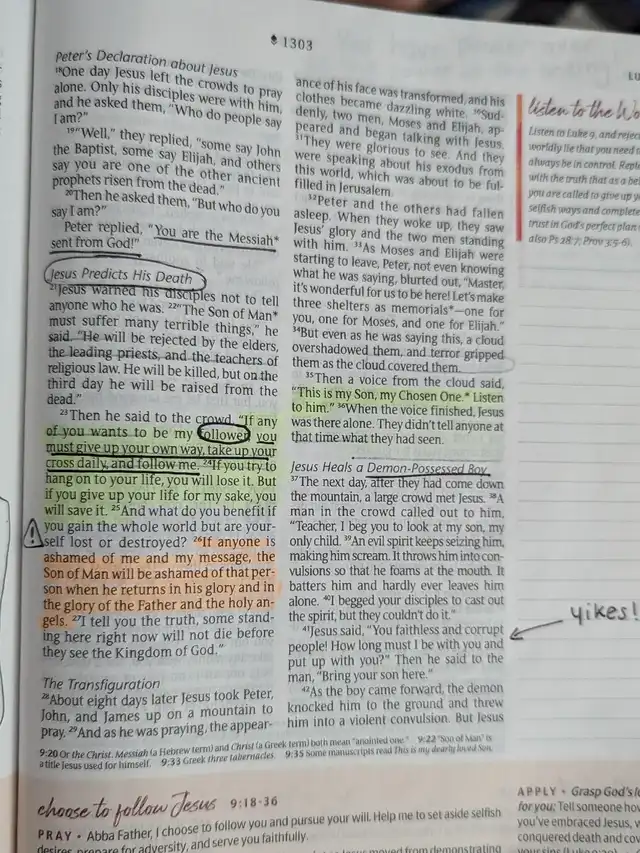 1303
Peter's Declaration about Jesus
18One day Jesus left the crowds to pray
alone. Only his disciples were with him,
and he asked them, "Who do people say
I am?"
19"Well," they replied, "some say John
the Baptist, some say Elijah, and others
say you are one of the other ancient
prophets risen from the dead."
20Then he asked them, "But who do you
say I am?"
Peter replied, "You are the Messiah*
sent from God!"
Jesus Predicts His Death
21Jesus warned his disciples not to tell
anyone who he was. 22"The Son of Man*
must suffer many terrible things," he
said. "He will be rejected by the elders,
the leading priests, and the teachers of
religious law. He will be killed, but on the
third day he will be raised from the
dead."
23Then he said to the crowd, "If any
of you wants to be my follower, you
must give up your own way, take up your
cross daily, and follow me. 24If you try to
hang on to your life, you will lose it. But
if you give up your life for my sake, you
will save it. 25And what do you benefit if
you gain the whole world but are your-
self lost or destroyed? 26If anyone is
ashamed of me and my message, the
Son of Man will be ashamed of that per-
son when he returns in his glory and in
the glory of the Father and the holy an-
gels. 27I tell you the truth, some stand-
ing here right now will not die before
they see the Kingdom of God."
The Transfiguration
28About eight days later Jesus took Peter,
John, and James up on a mountain to
pray. 29And as he was praying, the appear-
ance of his face was transformed, and his
clothes became dazzling white. 30Sud-
denly, two men, Moses and Elijah, ap-
peared and began talking with Jesus.
31They were glorious to see. And they
were speaking about his exodus from
this world, which was about to be ful-
filled in Jerusalem.
32Peter and the others had fallen
asleep. When they woke up, they saw
Jesus' glory and the two men standing
with him. 33As Moses and Elijah were
starting to leave, Peter, not even knowing
what he was saying, blurted out, "Master,
it's wonderful for us to be here! Let's make
three shelters as memorials*—one for
you, one for Moses, and one for Elijah."
34But even as he was saying this, a cloud
overshadowed them, and terror gripped
them as the cloud covered them.
35Then a voice from the cloud said,
"This is my Son, my Chosen One.* Listen
to him." 36When the voice finished, Jesus
was there alone. They didn't tell anyone at
that time what they had seen.
Jesus Heals a Demon-Possessed Boy
37The next day, after they had come down
the mountain, a large crowd met Jesus. 38A
man in the crowd called out to him,
"Teacher, I beg you to look at my son, my
only child. 39An evil spirit keeps seizing him,
making him scream. It throws him into con-
vulsions so that he foams at the mouth. It
batters him and hardly ever leaves him
alone. 40I begged your disciples to cast out
the spirit, but they couldn't do it."
41Jesus said, "You faithless and corrupt
people! How long must I be with you and
put up with you?" Then he said to the
man, "Bring your son here."
42As the boy came forward, the demon
knocked him to the ground and threw
him into a violent convulsion. But Jesus
yikes!
9:20 Or the Christ. Messiah (a Hebrew term) and Christ (a Greek term) both mean "anointed one." 9:22 "Son of Man" is
a title Jesus used for himself. 9:33 Greek three tabernacles. 9:35 Some manuscripts read This is my dearly loved Son.
LU
listen to the Wo
Listen to Luke 9, and rejec
worldly lie that you need
always be in control. Repl
with the truth that as a be
you are called to give up y
selfish ways and complete
trust in God's perfect plan
also Ps 28:7; Prov 3:5-6).
choose to follow Jesus 9:18-36
PRAY • Abba Father, I choose to follow you and pursue your will. Help me to set aside selfish
desires, prepare for adversity, and serve you faithfully.
moved from demonstrating
APPLY • Grasp God's lo
for you; Tell someone ho
you've embraced Jesus,
conquered death and co